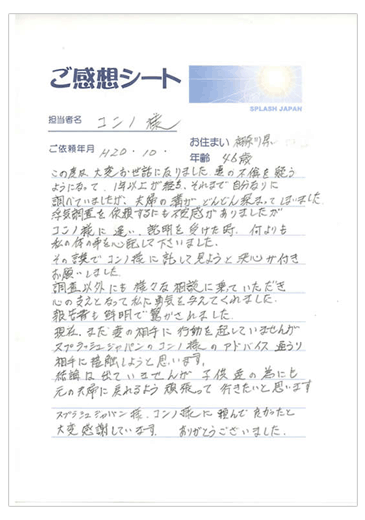 ご感想シート
SPLASH JAPAN
担当者名 コンノ様
ご依頼年月 H20.10. お住まい 神奈川県
年齢 46歳
この度は、大変お世話になりました。妻の不倫を疑う
ようになって、1年以上が経ち、それまで自分なりに
調べていましたが、夫婦の溝がどんどん深まってしまいました。
浮気調査を依頼するにも不安感がありましたが
コンノ様に逢い、説明を受けた時、何よりも
私の体の事を心配して下さいました。
その誠でコンノ様に託して見ようと決心が付き
お願いしました。
調査以外にも様々な相談に乗っていただき
心の支えとなって私に勇気を与えてくれました。
報告書も鮮明で驚かされました。
現在、まだ妻の相手に行動を起していませんが
スプラッシュジャパンのコンノ様のアドバイス通り
相手に接触しようと思います。
結論は出ていませんが子供達の為にも
元の夫婦に戻れるよう頑張って行きたいと思います
スプラッシュジャパン様、コンノ様に頼んで良かったと
大変感謝しています。ありがとうございました。